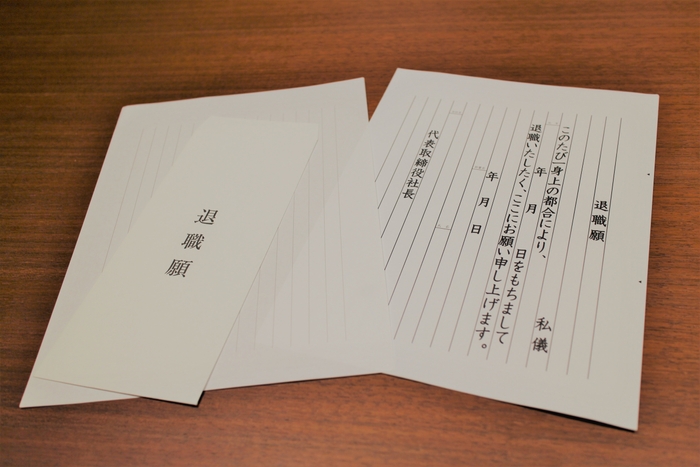 退職願
私儀
このたび一身上の都合により、
年 月 日をもちまして
退職いたしたく、ここにお願い申し上げます。
年 月 日
代表取締役社長
退職願